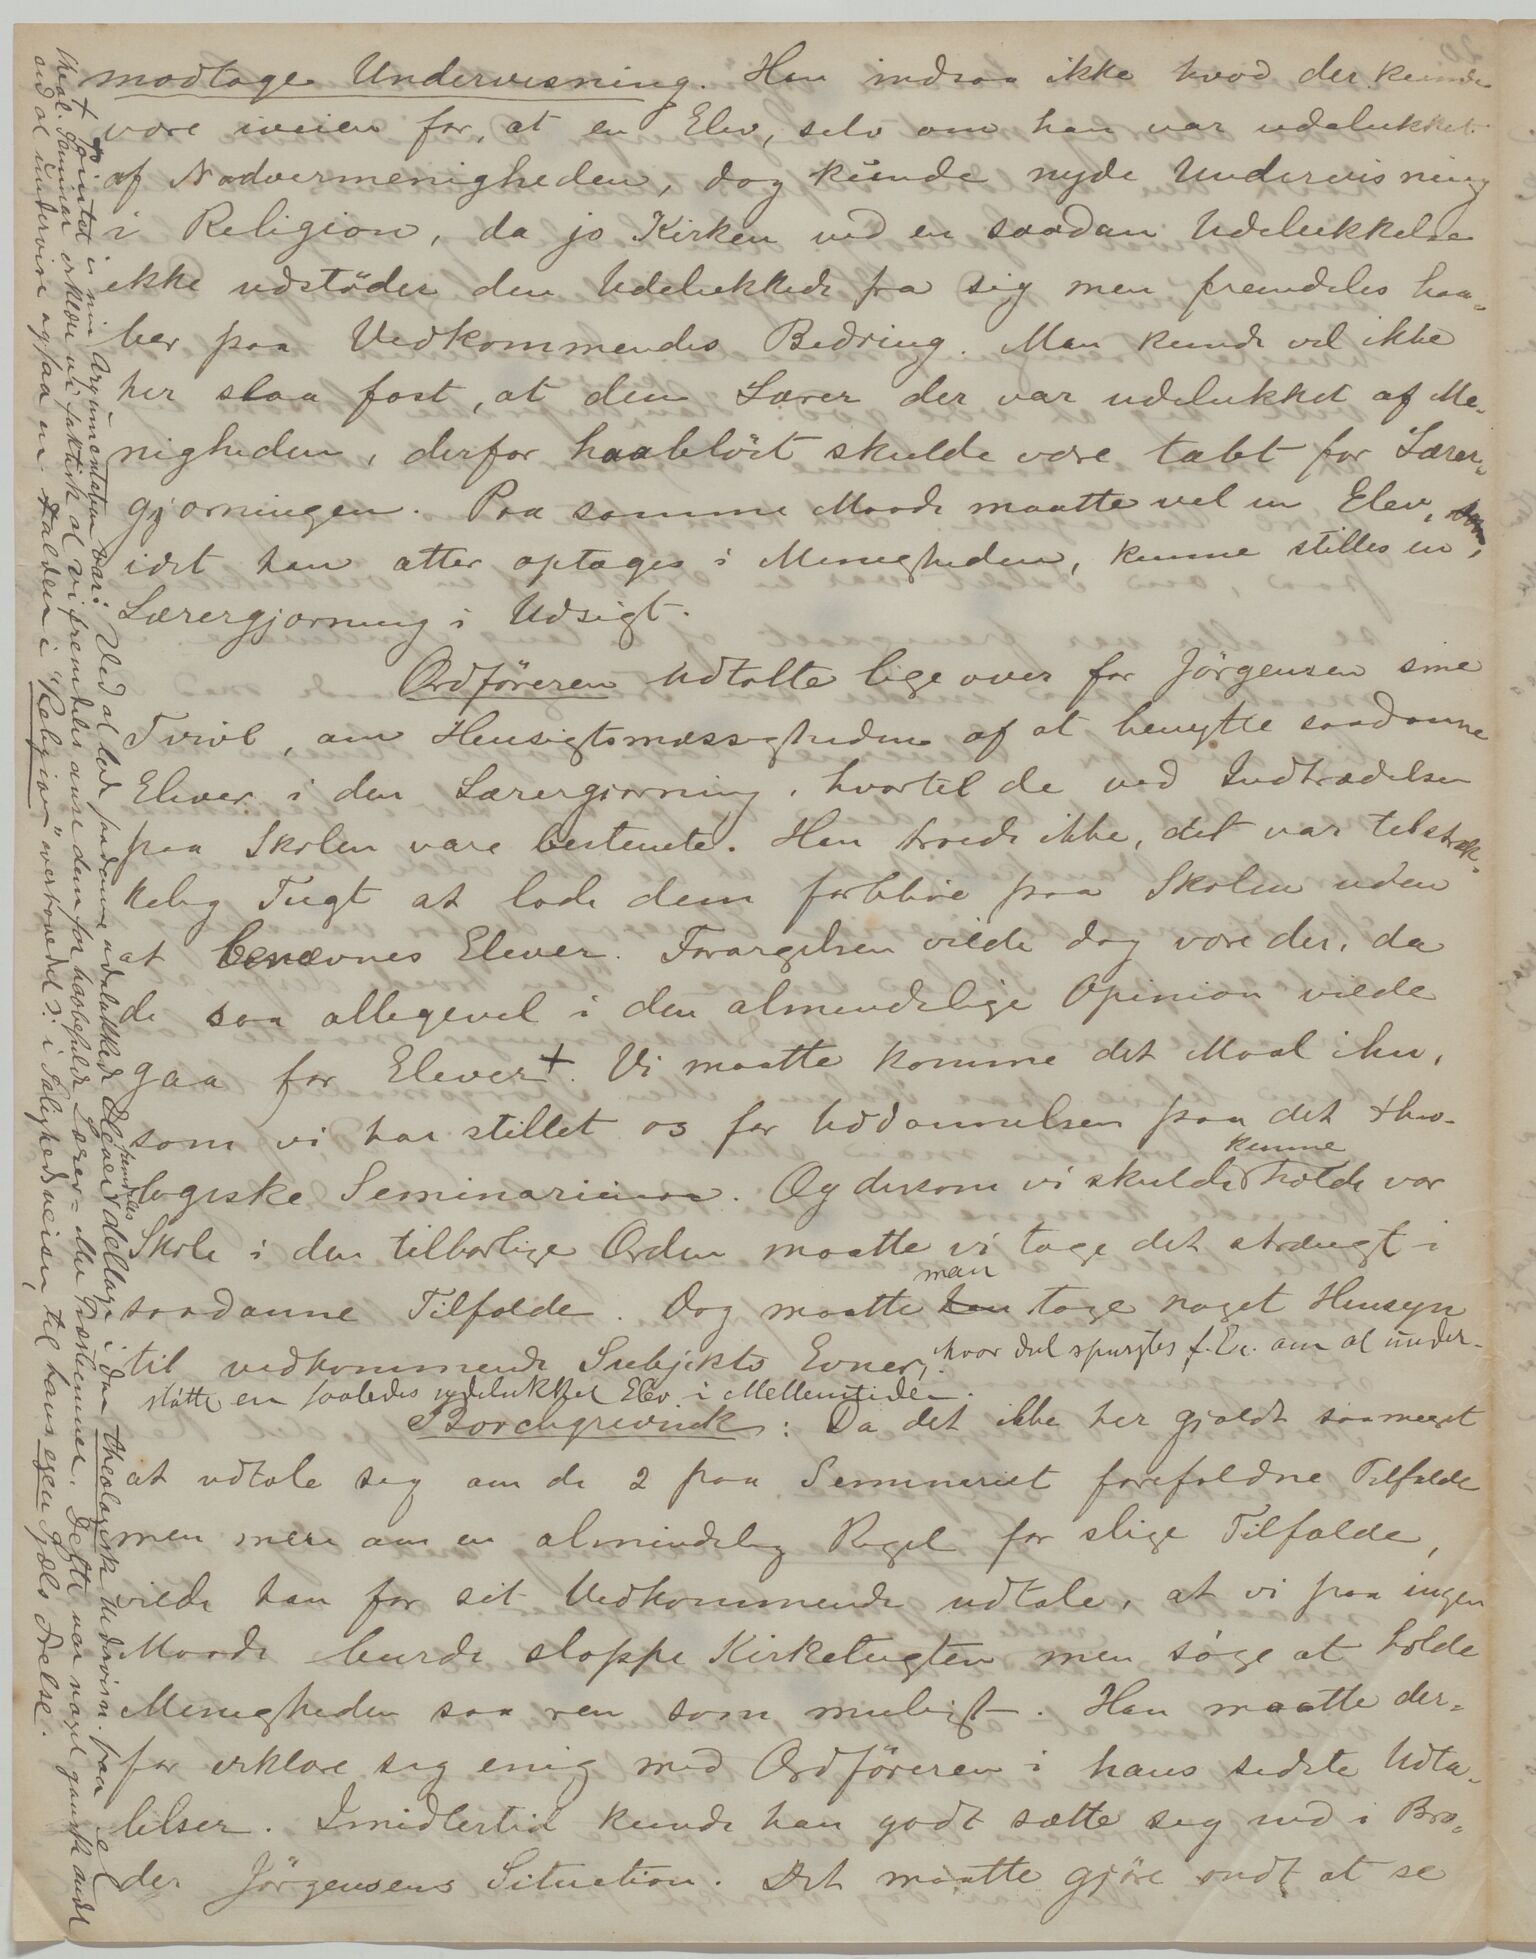 modtage Undervisning. Han indsaa ikke hvad der kunde
være iveien for, at en Elev, selv om han var udelukket
af Nadvermenigheden, dog kunde nyde Undervisning
i Religion, da jo Kirken ved en saadan Udelukkelse
ikke udstöder den Udelukkede fra sig men fremdeles haa-
ber paa Vedkommendes Bedring. Man kunde vel ikke
her slaa fast, at den Lærer der var udelukket af Me-
nigheden, derfor haablöst skulde være tabt for Lærer-
gjerningen. Paa samme Maade maatte vel en Elev,
idet han atter optages i Menigheden, kunne stilles en
Lærergjerning i Udsigt.
Ordföreren udtalte lige over for Jörgensen sine
Tvivl, om Hensigtsmæssigheden af at benytte saadanne
Elever i den Lærergjerning, hvortil de ved Indtrædelsen
paa Skolen vare bestemte. Han troede ikke, det var tilstræk-
kelig Tugt at lade dem forblive paa Skolen uden
at benævnes Elever. Forargelsen vilde dog være der, da
de saa allegevel i den almindelige Opinion vilde
gaa for Elever +. Vi maatte komme det Maal ihu,
som vi har stillet os for Uddannelsen paa det theo-
logiske Seminarium. Og dersom vi skulde kunne holde vor
Skole i den tilbørlige Orden maatte vi tage det strængt i
saadanne Tilfælde. Dog maatte man tage noget Hensyn
til vedkommende Subjekts Evner, hvor det spurgtes f. Ex. om at under-
støtte en saaledes udelukket Elev i Mellemtiden.
Borchgrevink: Da det ikke her gjaldt saameget
at udtale sig om de 2 paa Seminariet forefaldne Tilfælde
men mere om en almindelig Regel for slige Tilfælde,
vilde han for sit Vedkommende udtale, at vi paa ingen
Maade burde slappe Kirketugten men søge at holde
Menigheden saa ren som muligt. Han maatte der-
for erklære sig enig med Ordföreren i hans sidste Udta-
lelser. Imidlertid kunde han godt sætte sig ind i Bro-
der Jörgensens Situation. Det maatte gjöre ondt at se
+ Pointet i min Argumentation var: Ved at lade saadanne udelukkede Elever fremdeles deltage i den theologisk Undervisn. paa et
theol. Seminar erklærer vi faktisk at vi fremdeles anse dem for haabefulde Lærer- eller Præsteemner. Dette var noget ganske andet
end at undervise ogsaa en Falden i "Religion" i Salighedsveien, til hans egen Sjæls Frelse.